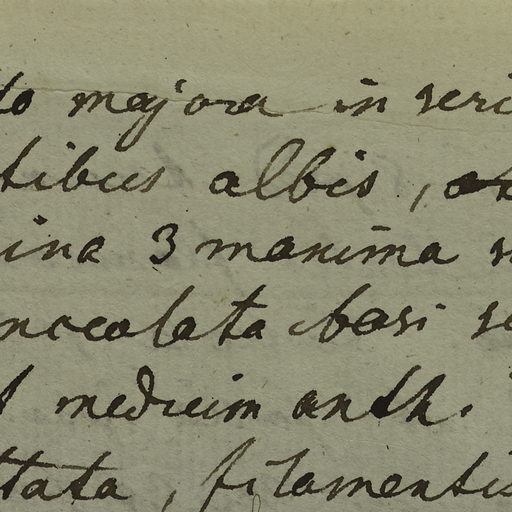 to majora in seri
tibus albis,
ina 3 maxima
maculata basi
medium anth.
tata, filamentis